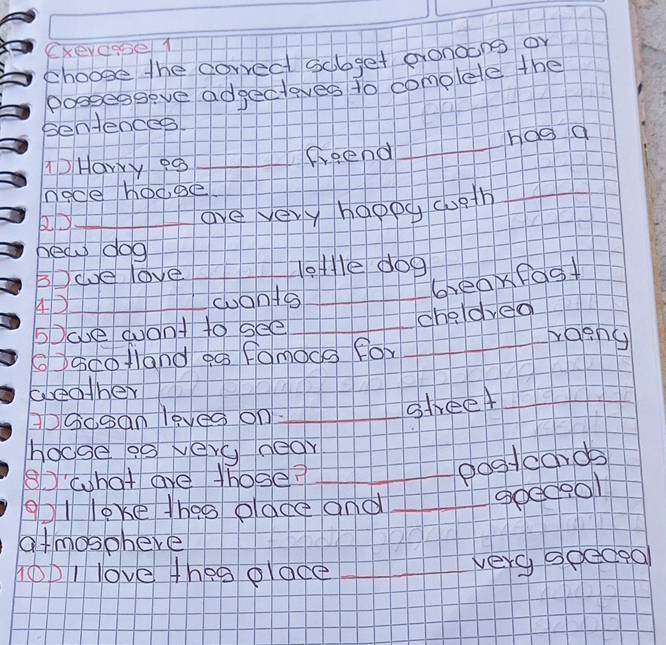 Exercise 1
choose the correct subget pronouns or
possessive adgectives to complete the
sentences.
1) Harry is ______ friend ______ has a
nice house.
2) ______ are very happy with ______
new dog
3) we love ______ little dog
4) ______ wants ______ breakfast
5) we want to see ______ children
6) scotland is famous for ______ rainy
weather
7) susan lives on ______ street ______
house is very near
8) what are those? ______ postcards
9) I like this place and ______ special
atmosphere
10) I love this place ______ very special